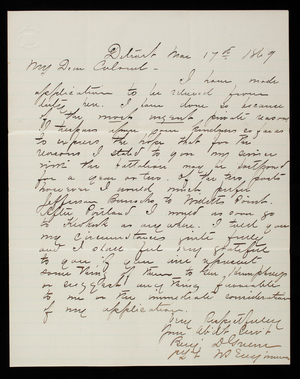 Detroit Mar 17th 1869
My Dear Colonel -
I have made
application to be relieved from
duty here. I have done so because
of the most urgent private reasons
upon your kindness so far as
to express the hope that for the
reasons I stated to you my service
with the battalion may be postponed
for a year or two. Of the two posts
however I would much prefer
Jefferson Barracks to Willetts Point.
After Portland I would as soon go
to as anywhere. I tell you
my circumstances quite freely
and I shall feel very grateful
to you if you will represent
something of them to Genl Humphreys
or suggest any thing favorable
to me on the immediate consideration
of my application.
Very Respectfully
Your Obdt Servt
Benj D Greene